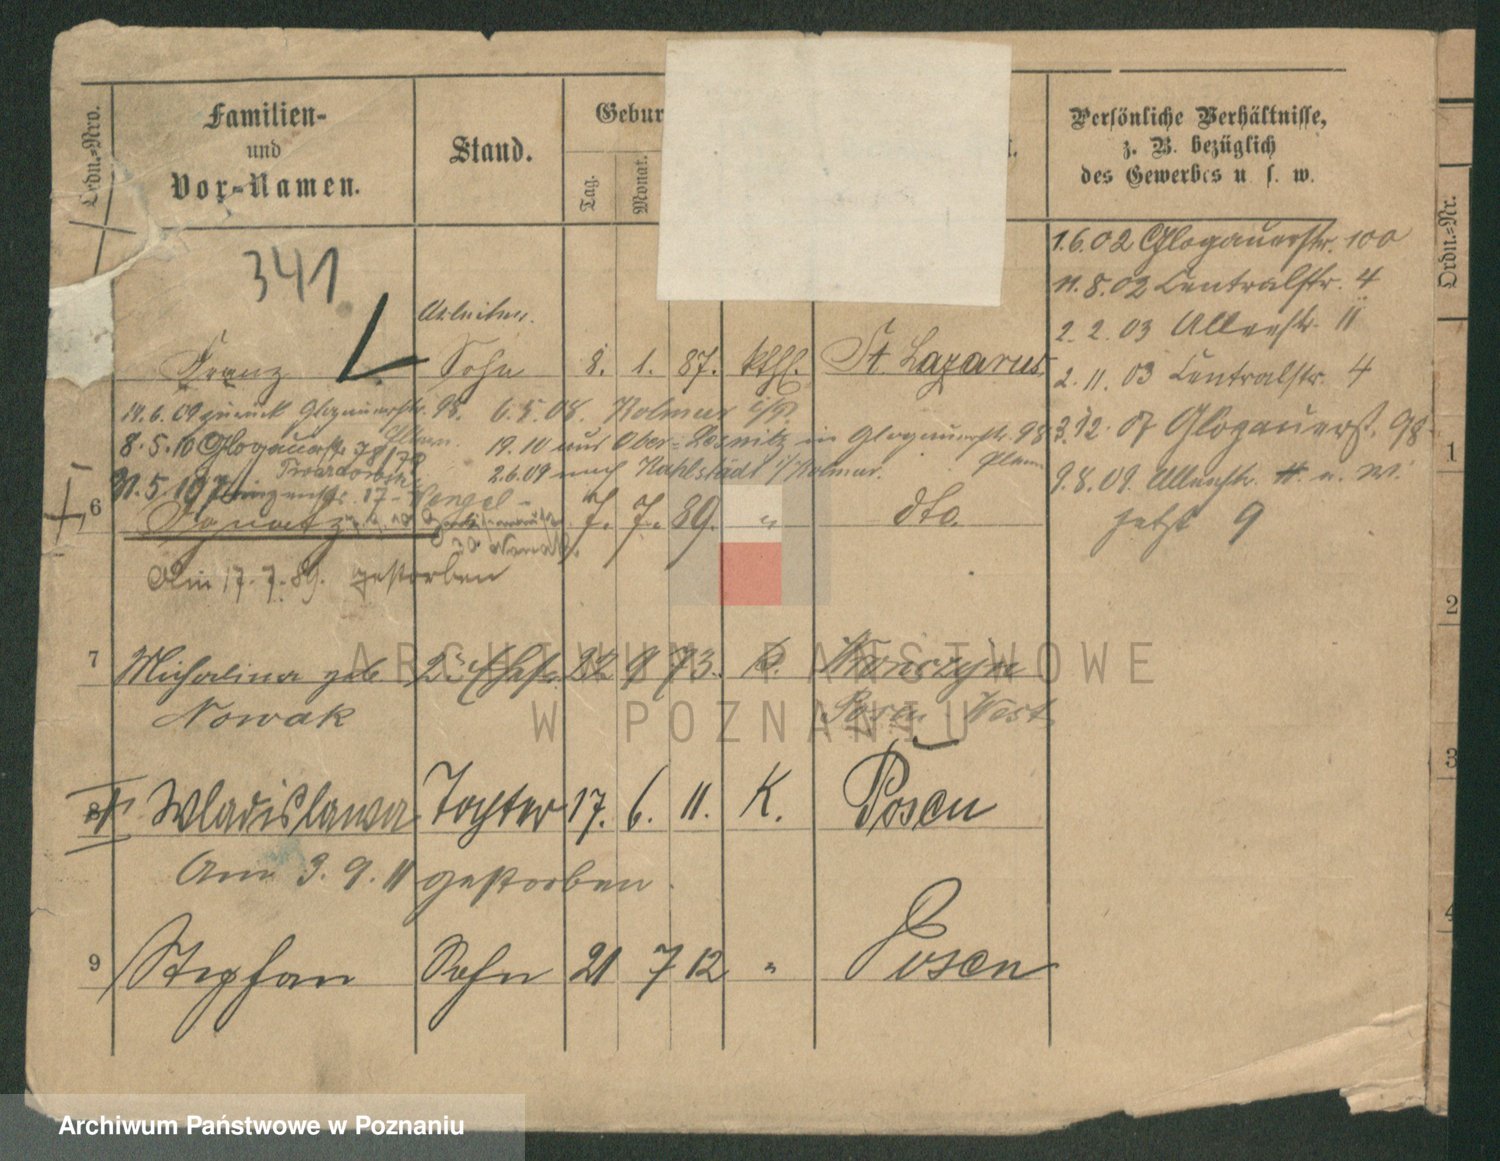 Ordn.-Nro.
Familien-
und
Vor-Namen.
Stand.
Gebur
Tag.
Monat.
t.
Persönliche Verhältnisse,
z. B. bezüglich
des Gewerbes u. s. w.
Ordn.-Nr.
341
1.6.02 Glogauerstr. 100
11.8.02 Centralstr. 4
2.2.03 Alleestr. 11
2.11.03 Centralstr. 4
Arbeiter.
Franz Sohn 8. 1. 87. kthl. St. Lazarus
19.6.09 zurück Glogauerstr. 98. 6.5.08. Kolmar i/P.
8.5.10 Glogauerstr. 78 19.10 aus Ober- in Glogauerstr. 98
2.6.09 nach Kolmar.
3.12.07 Glogauerst. 98
9.8.09. Alleestr.
jetzt 9
31.5.10 17
6 Ignatz 7. 7. 89. " dto.
Am 17.7.89. gestorben
7 Michalina geb 2. Ehefr. 22 9 73. k.
Nowak Posen West
8 Wladislawa Tochter 17. 6. 11. K. Posen
Am 3.9.11 gestorben.
9 Stephan Sohn 21 7 12 " Posen
1
2
3
4
ARCHIWUM PAŃSTWOWE
W POZNANIU
Archiwum Państwowe w Poznaniu